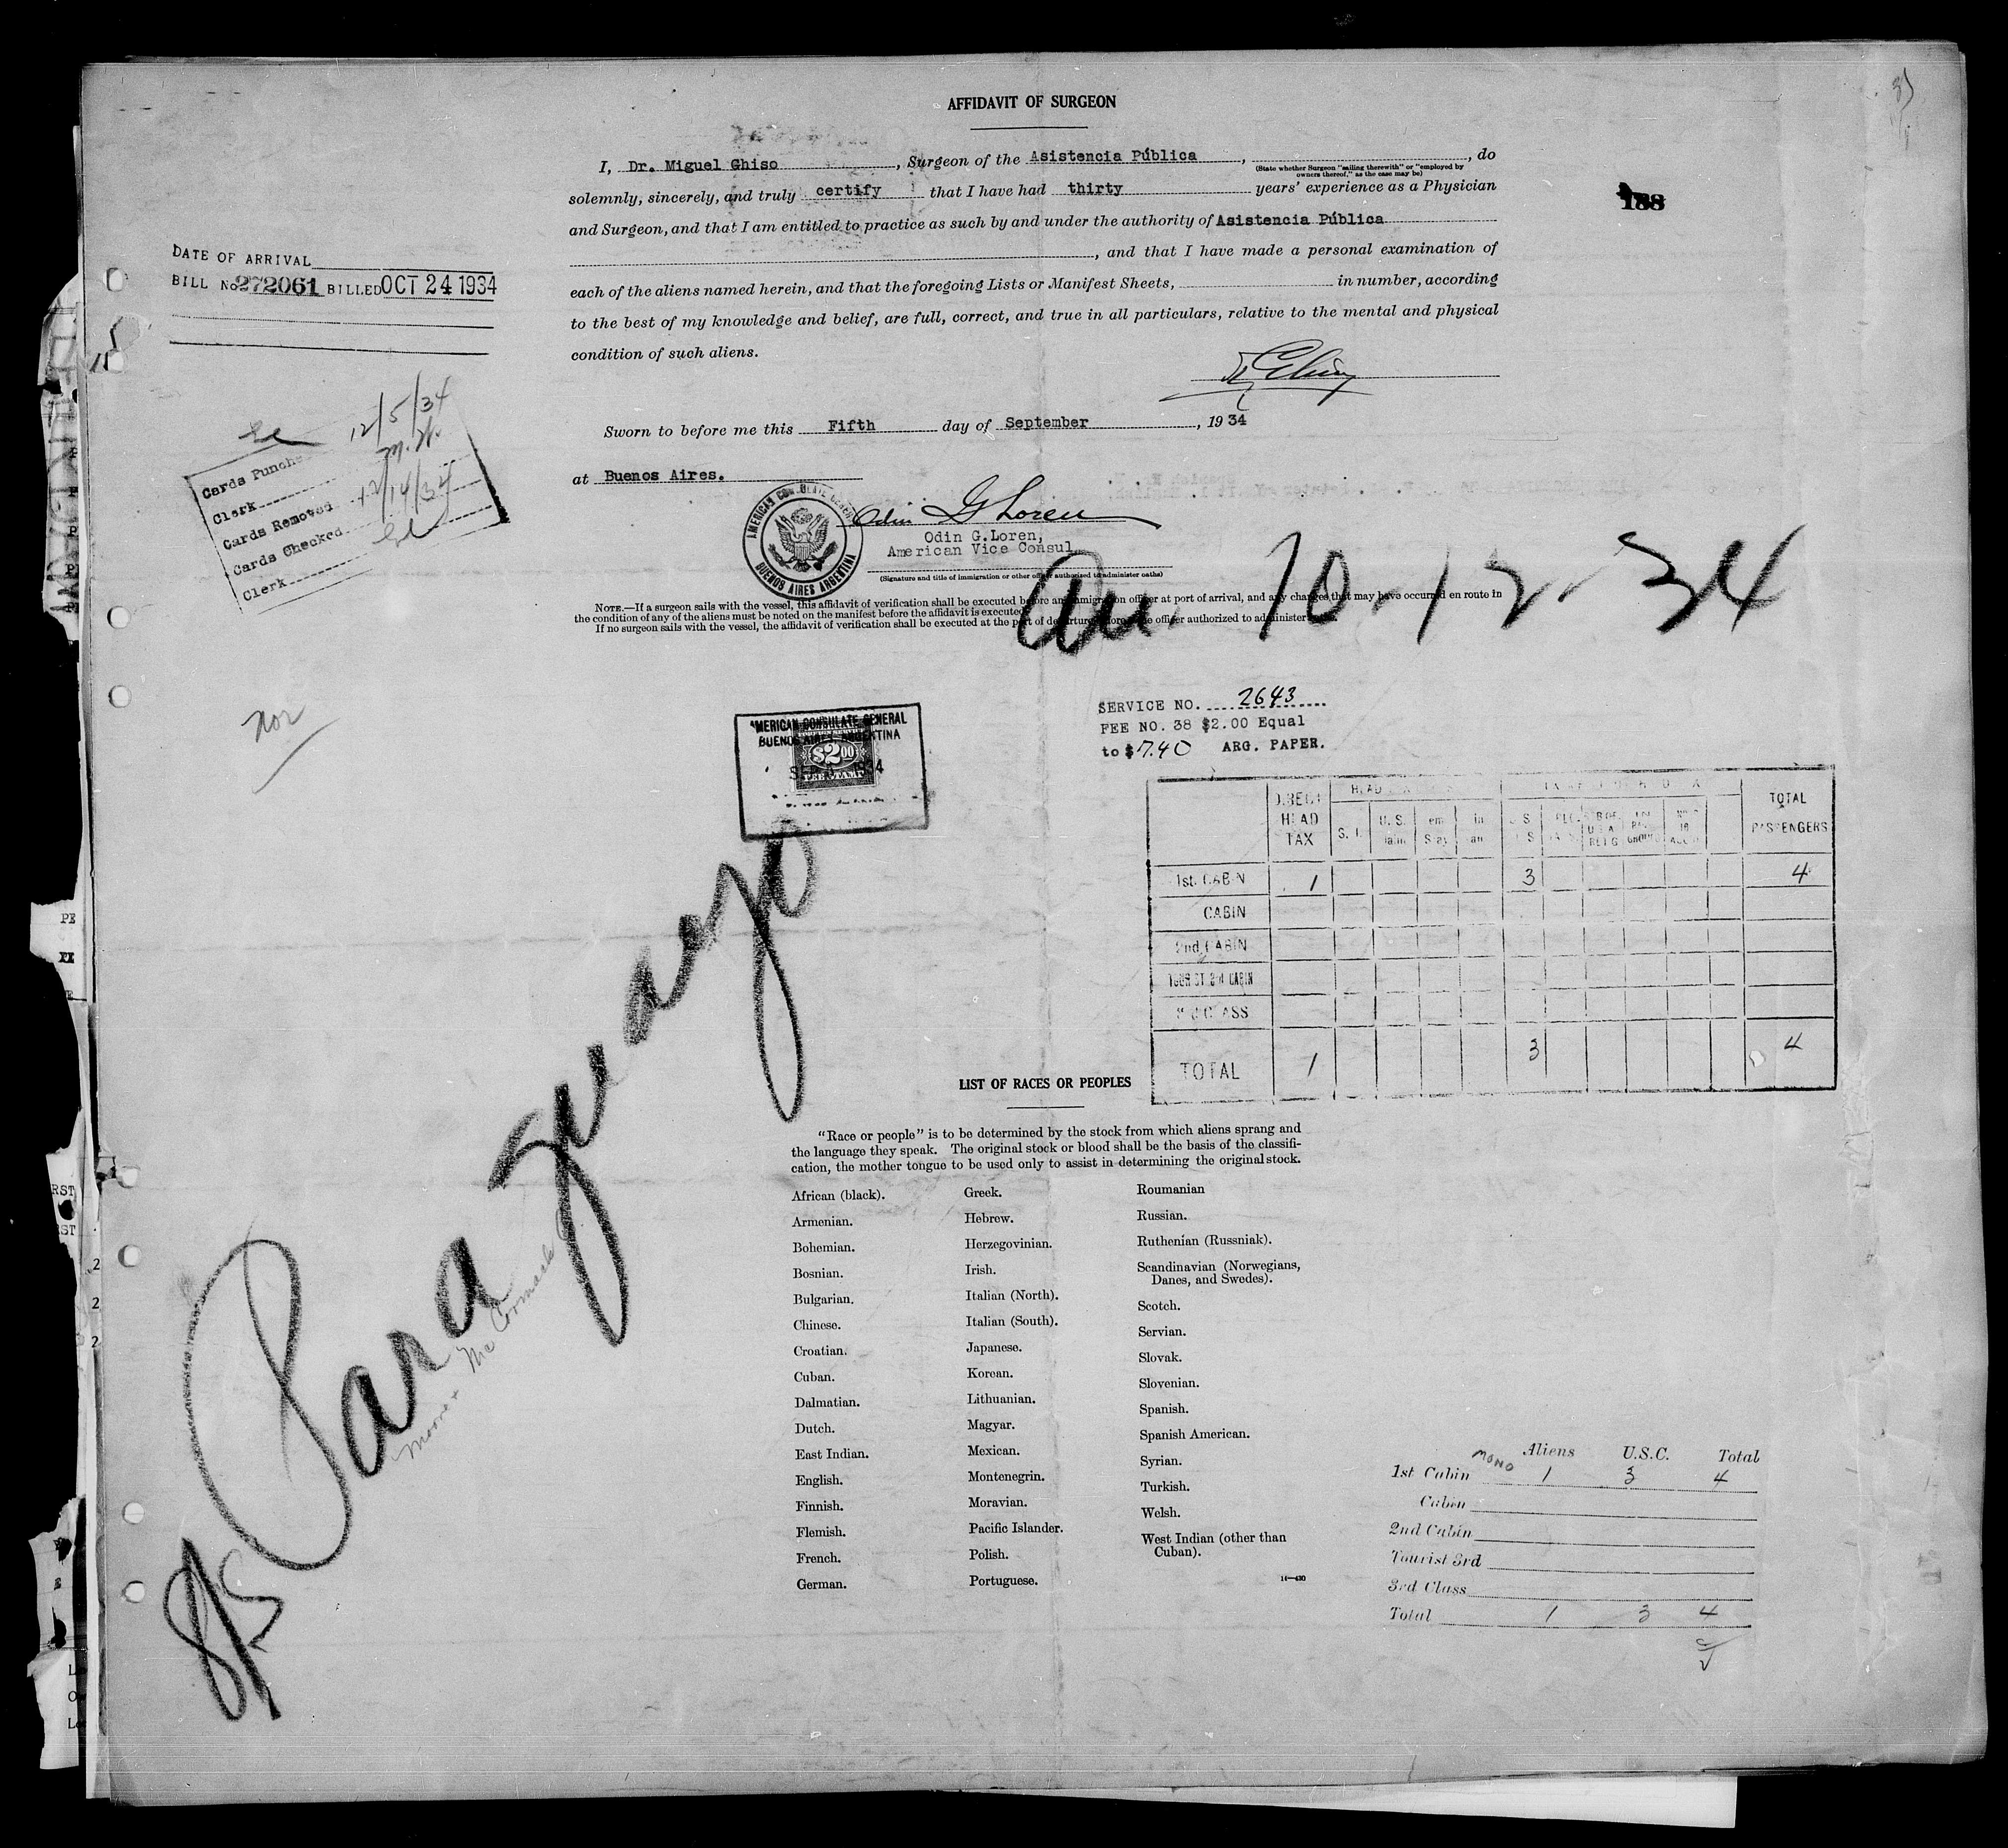 AFFIDAVIT OF SURGEON
I, Dr. Miguel Ghiso, Surgeon of the Asistencia Pública, , do
(State whether Surgeon "sailing therewith" or "employed by
owners thereof," as the case may be)
solemnly, sincerely, and truly certify that I have had thirty years' experience as a Physician
and Surgeon, and that I am entitled to practice as such by and under the authority of Asistencia Pública
, and that I have made a personal examination of
each of the aliens named herein, and that the foregoing Lists or Manifest Sheets, in number, according
to the best of my knowledge and belief, are full, correct, and true in all particulars, relative to the mental and physical
condition of such aliens.
188
DATE OF ARRIVAL
BILL No 272061 BILLED OCT 24 1934
Sworn to before me this Fifth day of September, 1934
at Buenos Aires.
12/5/34
M.H.
Cards Punch
Clerk
Cards Removed 12/14/34
Cards Checked
Clerk
AMERICAN CONSULATE GENERAL
BUENOS AIRES ARGENTINA
Odin G Loren
Odin G. Loren,
American Vice Consul
(Signature and title of immigration or other officer authorized to administer oaths)
10-12-34
NOTE.—If a surgeon sails with the vessel, this affidavit of verification shall be executed before an immigration officer at port of arrival, and any changes that may have occurred en route in
the condition of any of the aliens must be noted on the manifest before the affidavit is executed.
If no surgeon sails with the vessel, the affidavit of verification shall be executed at the port of departure before the officer authorized to administer
AMERICAN CONSULATE GENERAL
BUENOS AIRES ARGENTINA
$2.00
FEE STAMP
1934
SERVICE NO. 2643
FEE NO. 38 $2.00 Equal
to $7.40 ARG. PAPER.
HEAD TAX
TOTAL PASSENGERS
1st. CABIN 1 3 4
CABIN
2nd CABIN
TOTAL 1 3 4
Paraguayo
Moore + McCormack
LIST OF RACES OR PEOPLES
"Race or people" is to be determined by the stock from which aliens sprang and
the language they speak. The original stock or blood shall be the basis of the classifi-
cation, the mother tongue to be used only to assist in determining the original stock.
African (black).
Armenian.
Bohemian.
Bosnian.
Bulgarian.
Chinese.
Croatian.
Cuban.
Dalmatian.
Dutch.
East Indian.
English.
Finnish.
Flemish.
French.
German.
Greek.
Hebrew.
Herzegovinian.
Irish.
Italian (North).
Italian (South).
Japanese.
Korean.
Lithuanian.
Magyar.
Mexican.
Montenegrin.
Moravian.
Pacific Islander.
Polish.
Portuguese.
Roumanian
Russian.
Ruthenian (Russniak).
Scandinavian (Norwegians,
Danes, and Swedes).
Scotch.
Servian.
Slovak.
Slovenian.
Spanish.
Spanish American.
Syrian.
Turkish.
Welsh.
West Indian (other than
Cuban).
14—430
Aliens U.S.C. Total
1st Cabin MONO 1 3 4
Cabin
2nd Cabin
Tourist 3rd
3rd Class
Total 1 3 4